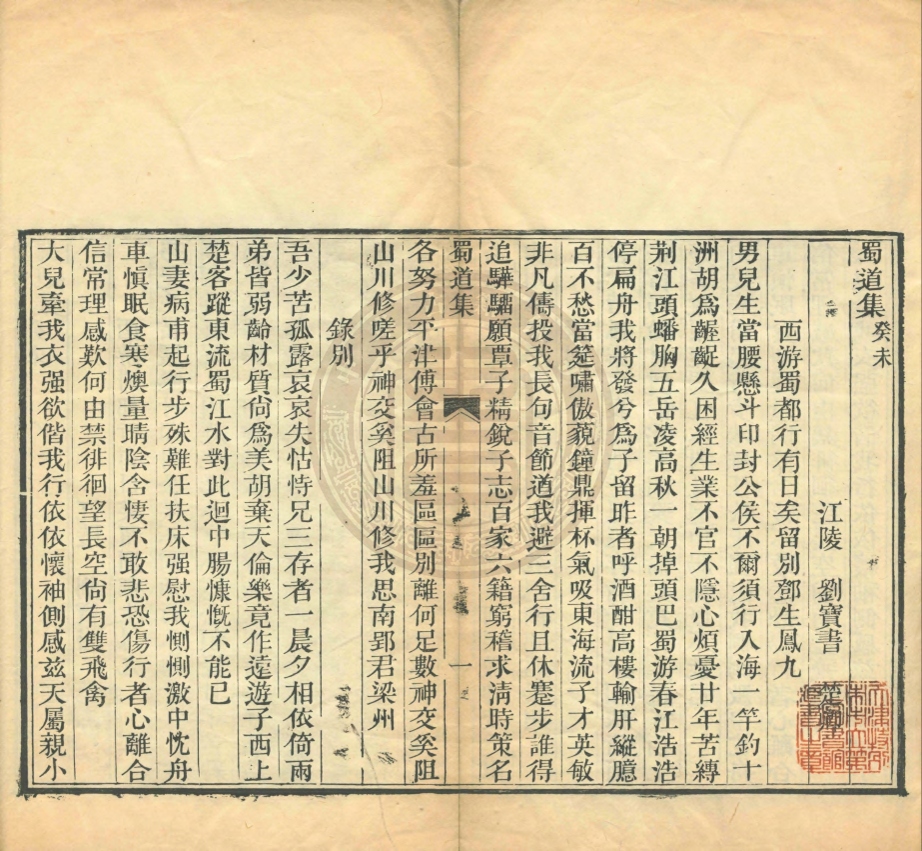 蜀道集 癸未
江陵 劉寶書
西游蜀都行有日矣留別鄧生鳳九
男兒生當腰懸斗印封公侯不爾須行入海一竿釣十
洲胡爲齷齪久困經生業不官不隱心煩憂廿年苦縛
荆江頭蟠胸五岳凌高秋一朝掉頭巴蜀游春江浩浩
停扁舟我將發兮爲子留昨者呼酒酣高樓輸肝縱臆
百不愁當筵嘯傲藐鐘鼎揮杯氣吸東海流子才英敏
非凡儔投我長句音節遒我避三舍行且休蹇步誰得
追驊騮願覃子精銳子志百家六籍窮稽求清時策名
蜀道集 一
各努力平津傅會古所羞區區別離何足數神交奚阻
山川修嗟乎神交奚阻山川修我思南郢君梁州
錄別
吾少苦孤露哀哀失怙恃兄三存者一晨夕相依倚兩
弟皆弱齡材質尙爲美胡棄天倫樂竟作遠遊子西上
楚客蹤東流蜀江水對此迴中腸慷慨不能已
山妻病甫起行步殊難任扶床强慰我惻惻激中忱舟
車愼眠食寒燠量晴陰含悽不敢悲恐傷行者心離合
信常理感歎何由禁徘徊望長空尙有雙飛禽
大兒牽我衣强欲偕我行依依懷袖側感玆天屬親小